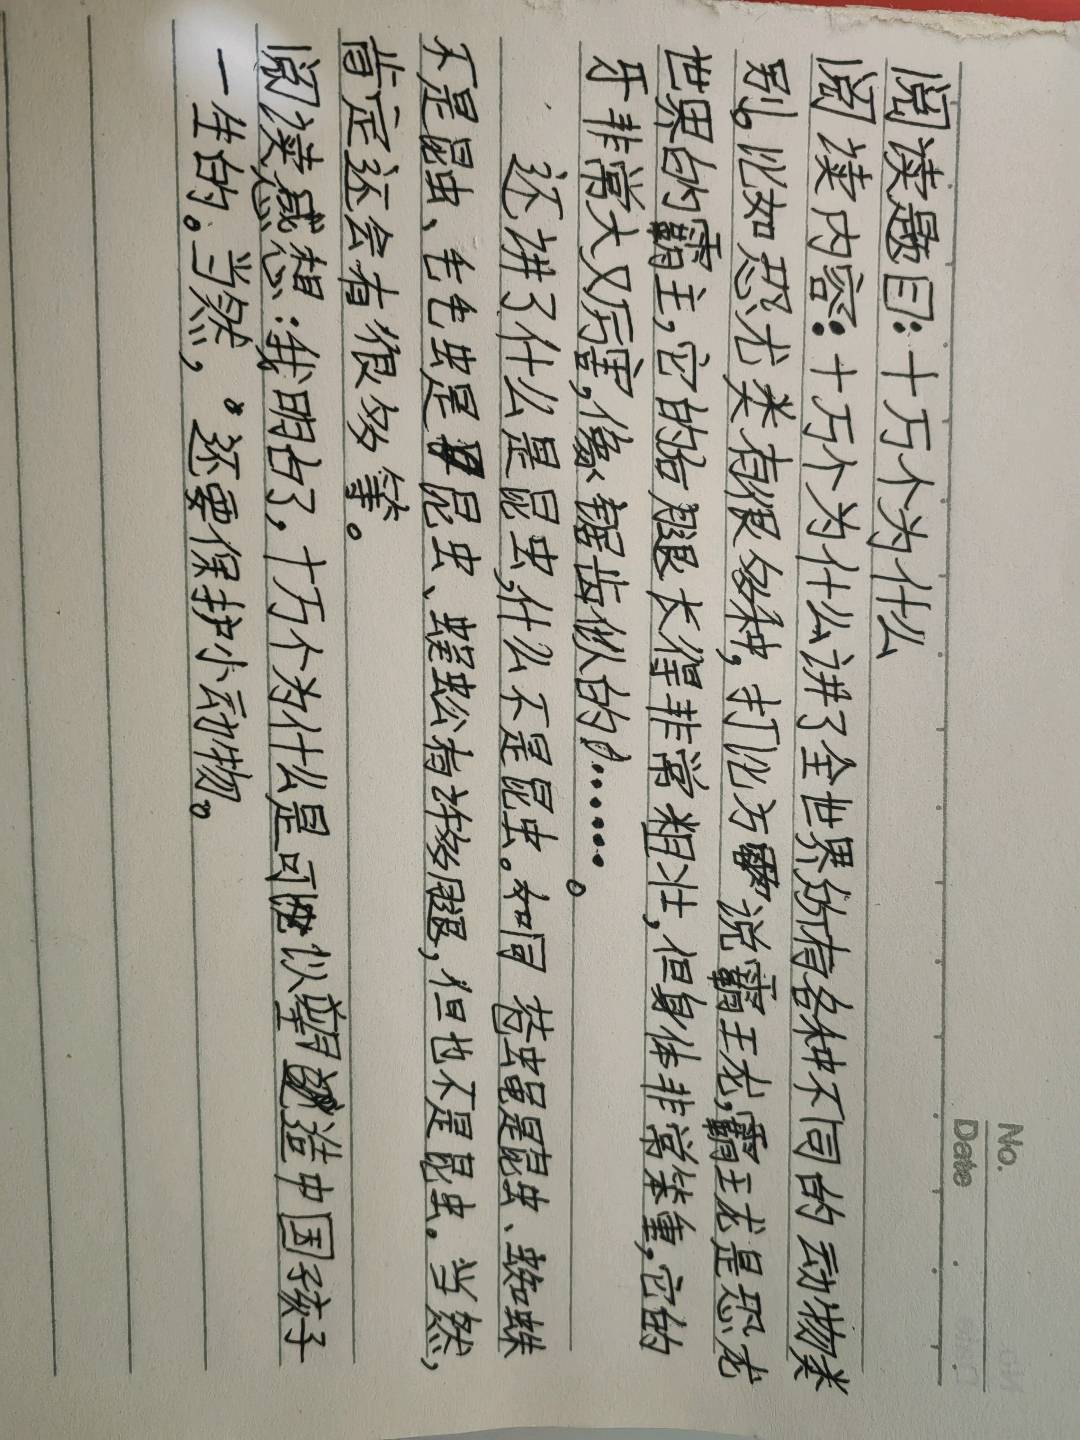 No.
Date
阅读题目：十万个为什么
阅读内容：十万个为什么讲了全世界所有各种不同的动物类
别。比如恐龙类有很多种，打比方说霸王龙，霸王龙是恐龙
世界的霸主，它的后腿长得非常粗壮，但身体非常笨重，它的
牙非常大又厉害，像锯齿似的……。
还讲了什么是昆虫，什么不是昆虫。如同 是昆虫、蜘蛛
不是昆虫、毛毛虫是昆虫、蜈蚣有许多腿，但也不是昆虫。当然，
肯定还会有很多等。
阅读感想：我明白了，十万个为什么是可以塑造中国孩子
一生的。当然，还要保护小动物。